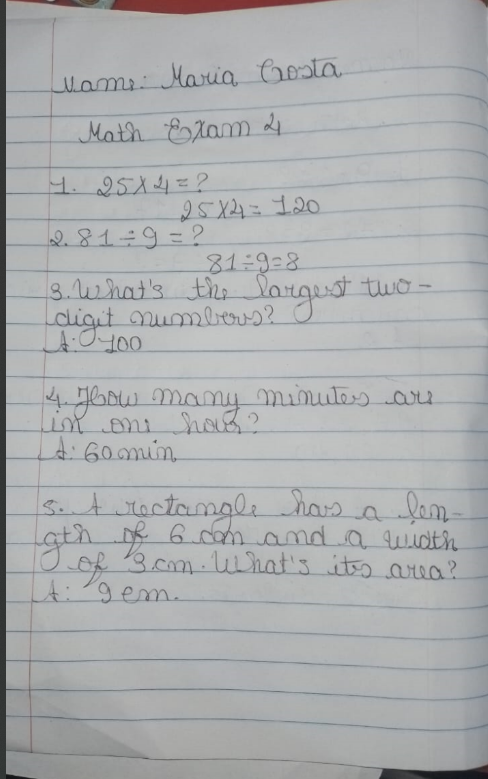 Name: Maria Costa
Math Exam 4
1. 25×4=?
25×4=120
2. 81÷9=?
81÷9=8
3. What's the largest two-
digit numbers?
A: 100
4. How many minutes are
in one hour?
A: 60 min
5. A rectangle has a len-
gth of 6 cm and a width
of 3 cm. What's its area?
A: 9 cm.